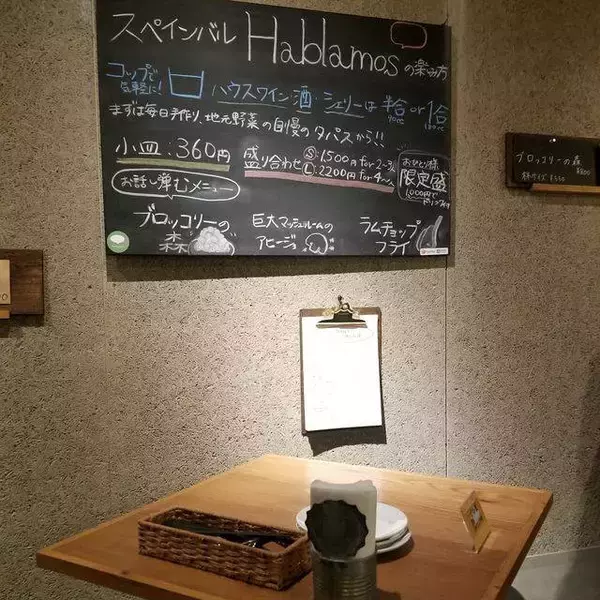 スペインバル Hablamosの楽み方
コップで
気軽に!
ハウスワイン・酒・シェリーは 半合 or 1合
90cc 180cc
まずは毎日手作り、地元野菜の自慢のタパスから!!
小皿:360円
盛り合わせ
Ⓢ:1,500円 for 2~3人
Ⓛ:2200円 for 4~人
おひとり様
限定盛
1,000円で
お話し弾むメニュー
ブロッコリーの
森
巨大マッシュルームの
アヒージョ
ラムチョップ
フライ
ブロッコリーの森